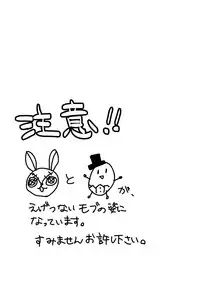 注意!!
と が、
えげつない モブの姿に
なっています。
すみませんお許し下さい。